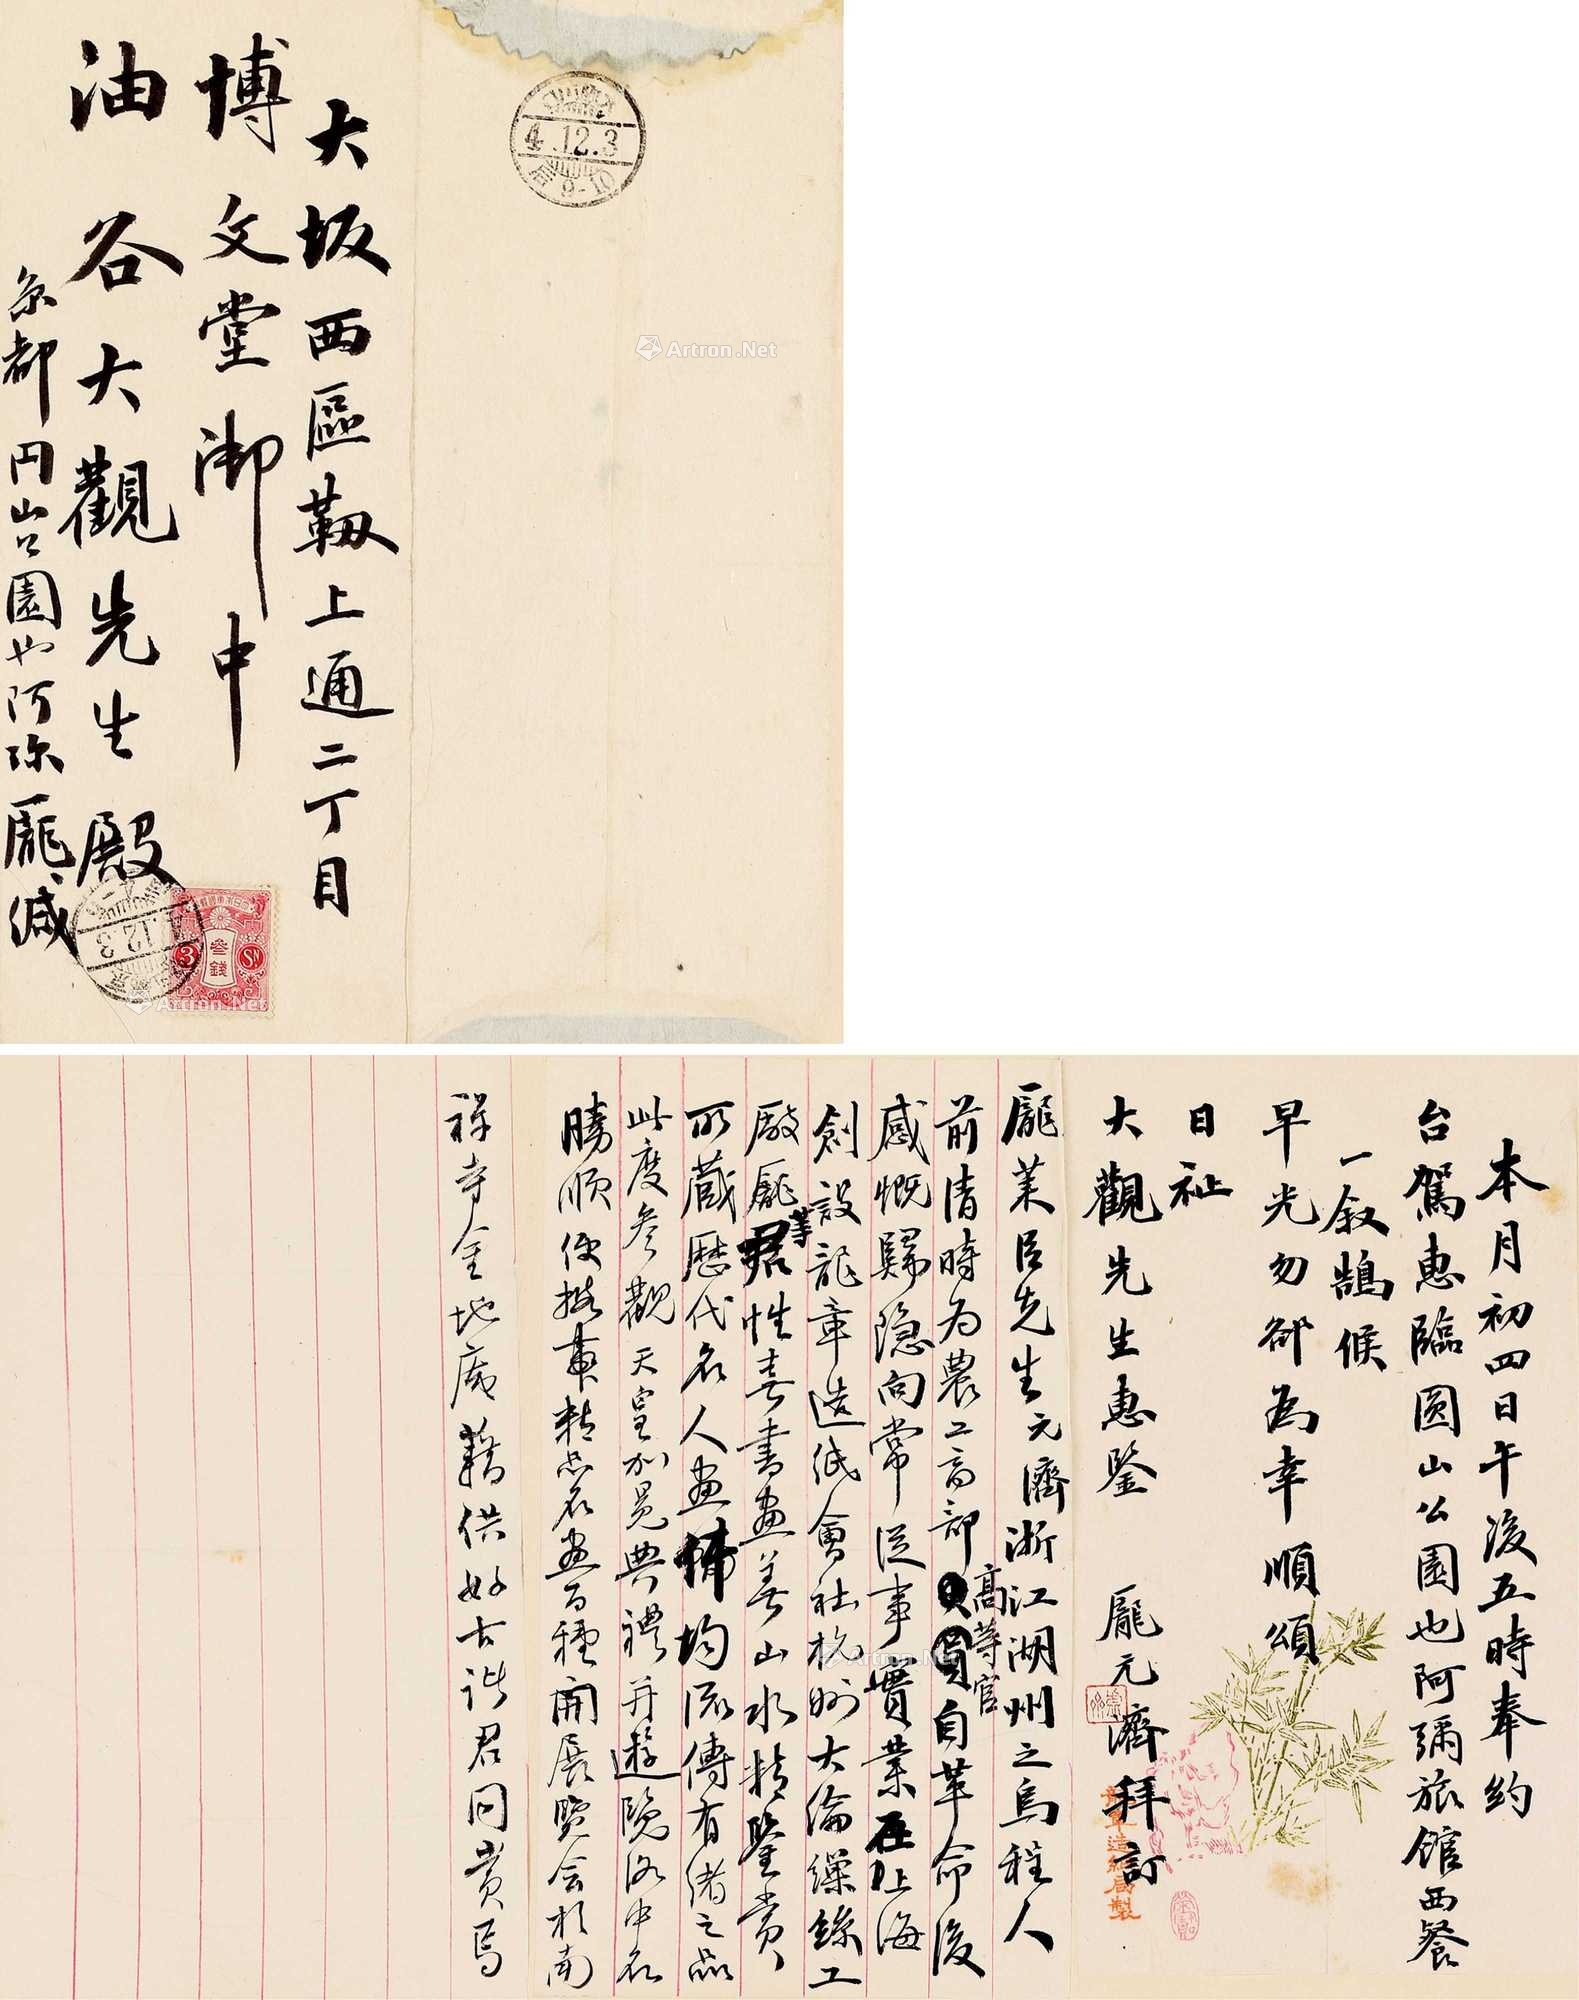 大坂西區靱上通二丁目
博文堂御中
油谷大觀先生殿
京都円山公園也阿弥龐緘
4.12.3
4.12.3
叁錢
3
SN
Artron.Net
Artron.Net
本月初四日午後五時奉約
台駕惠臨圓山公園也阿彌旅館西餐
一敘鵠候
早光勿卻為幸順頌
日祉
大觀先生惠鑒 龐元濟拜訂
龍章造紙局製
龐萊臣先生元濟浙江湖州之烏程人
前清時為農工商部高等官自革命後
感慨歸隐向常從事實業在上海
創設龍章造紙會社杭州大倫繰絲工
厰龐君等性喜書畫善山水精鑒賞
所蔵歷代名人画均流傳有緒之品
此度參觀天皇加冕典禮并遊覽洛中名
勝順便携帶精品名画百種開展覽会於南
禅寺金地庵藉供好古諸君同賞焉
Artron.Net